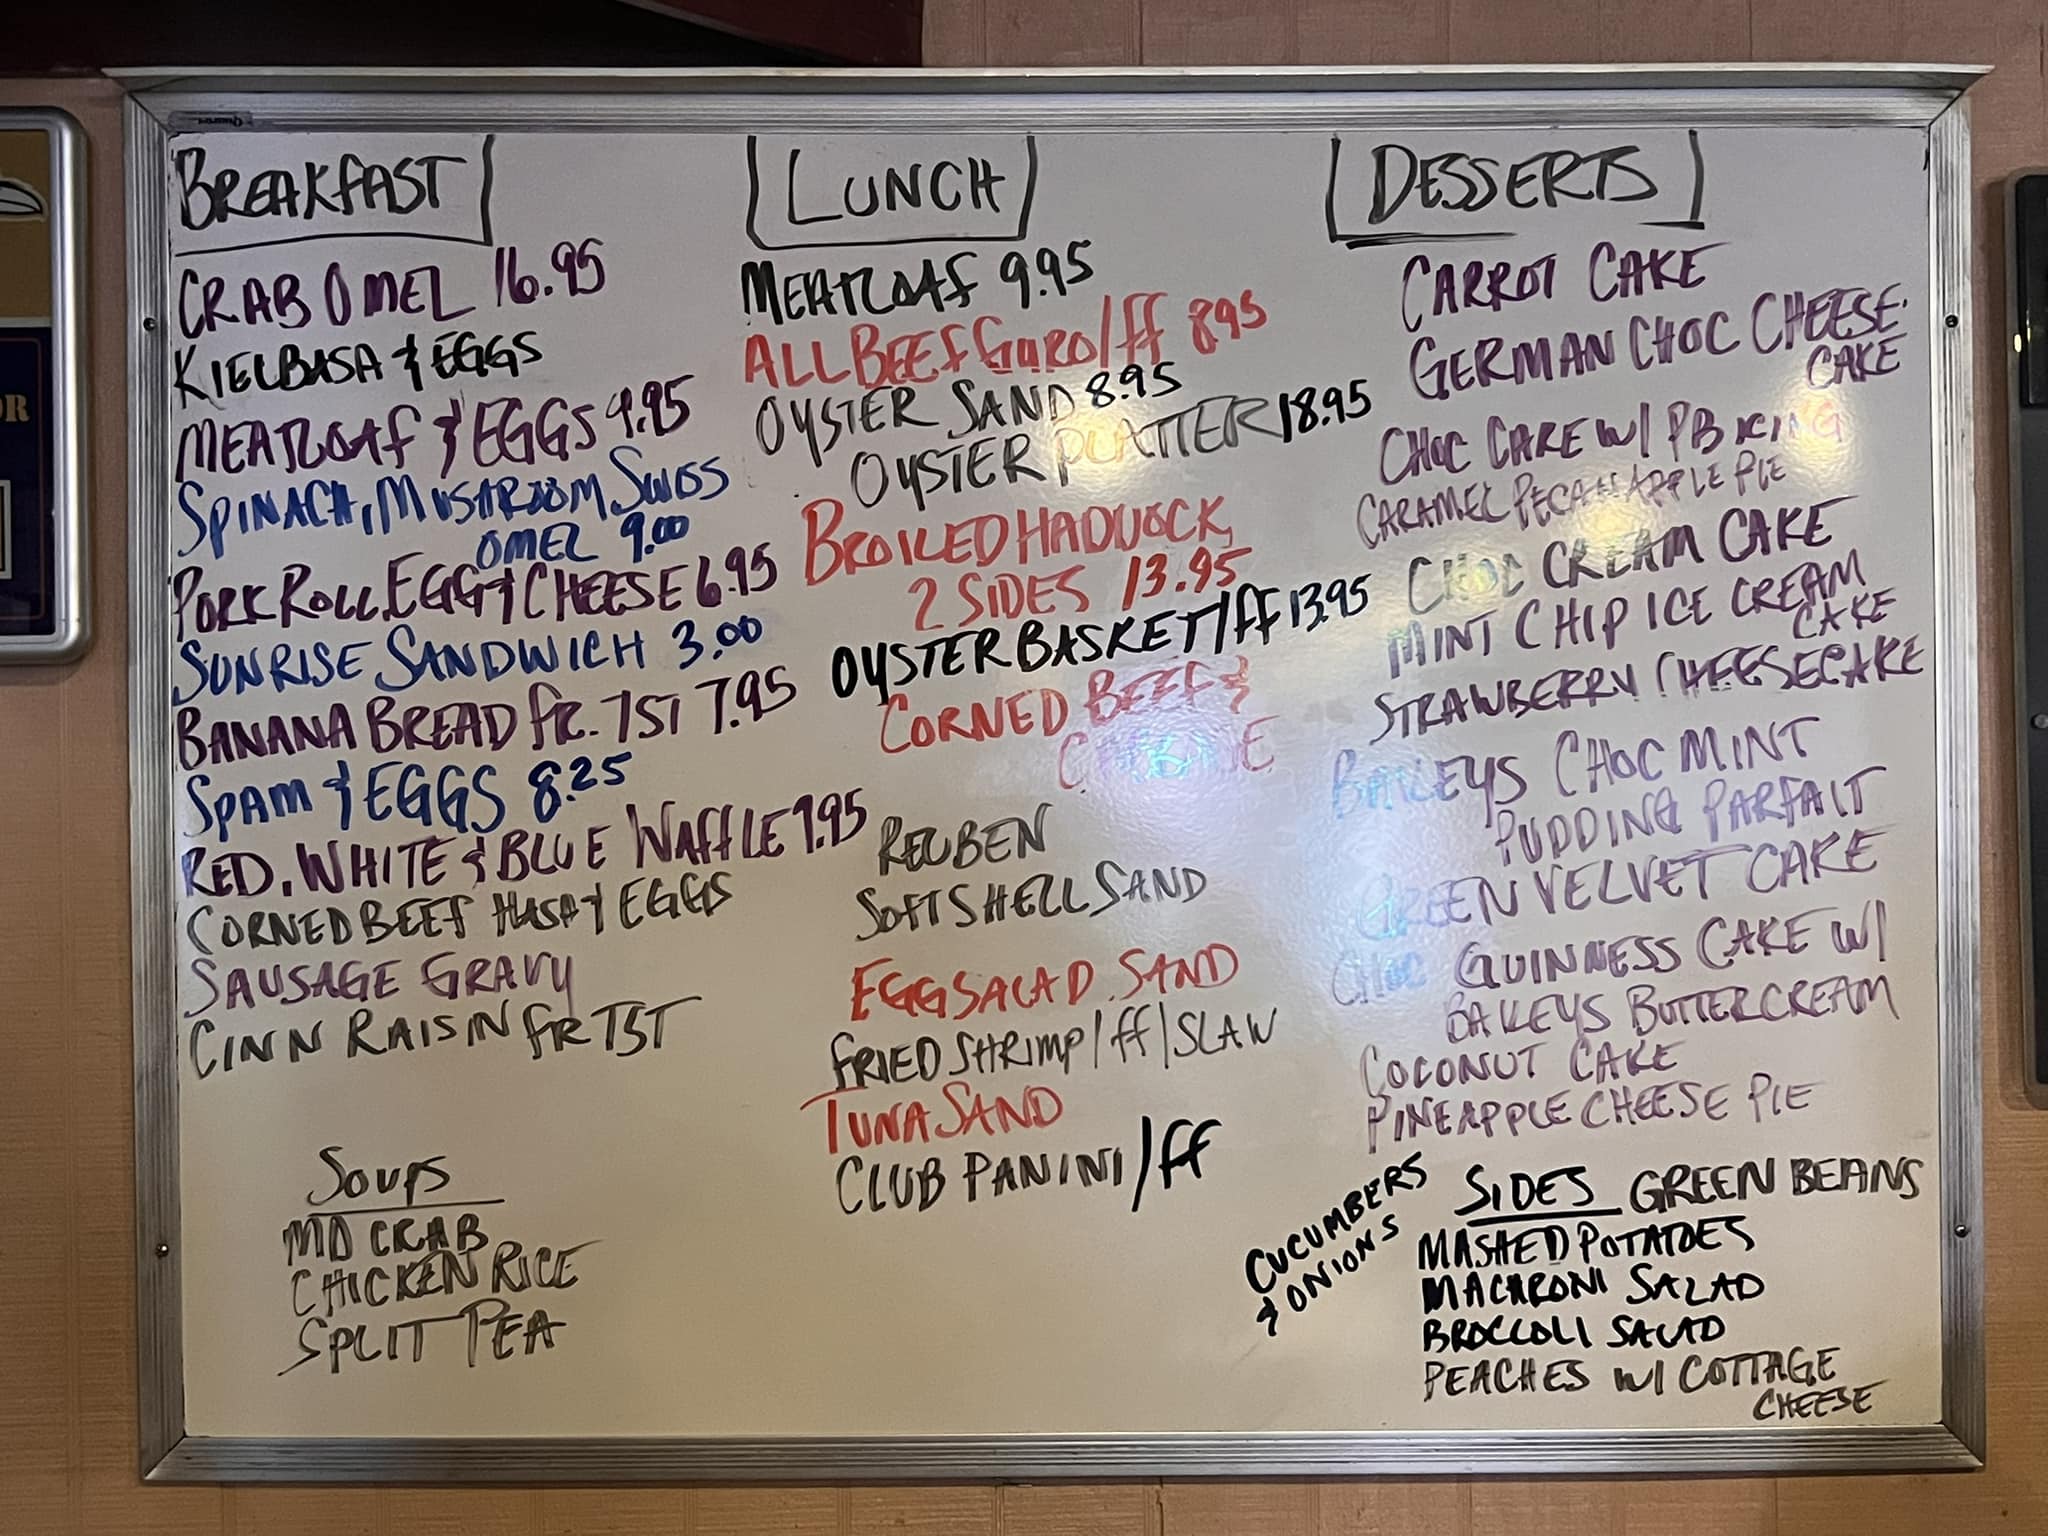 BREAKFAST
CRAB OMEL 16.95
KIELBASA & EGGS
MEATLOAF & EGGS 9.95
SPINACH, MUSHROOM, SWISS
OMEL 9.00
PORK ROLL, EGG & CHEESE 6.95
SUNRISE SANDWICH 3.00
BANANA BREAD FR. TST 7.95
SPAM & EGGS 8.25
RED, WHITE & BLUE WAFFLE 9.95
CORNED BEEF HASH & EGGS
SAUSAGE GRAVY
CINN RAISIN FR TST
SOUPS
MD CRAB
CHICKEN RICE
SPLIT PEA
LUNCH
MEATLOAF 9.95
ALL BEEF GYRO/FF 8.95
OYSTER SAND 8.95
OYSTER PLATTER 18.95
BROILED HADDOCK,
2 SIDES 13.95
OYSTER BASKET/FF 13.95
CORNED BEEF &
REUBEN
SOFT SHELL SAND
EGG SALAD SAND
FRIED SHRIMP/FF/SLAW
TUNA SAND
CLUB PANINI/FF
DESSERTS
CARROT CAKE
GERMAN CHOC CHEESE
CAKE
CHOC CAKE W/ PB ICING
CARAMEL PECAN APPLE PIE
CHOC CREAM CAKE
MINT CHIP ICE CREAM
CAKE
STRAWBERRY CHEESECAKE
BAILEYS CHOC MINT
PUDDING PARFAIT
GREEN VELVET CAKE
CHOC GUINNESS CAKE W/
BAILEYS BUTTERCREAM
COCONUT CAKE
PINEAPPLE CHEESE PIE
SIDES GREEN BEANS
MASHED POTATOES
MACARONI SALAD
BROCCOLI SALAD
PEACHES W/ COTTAGE
CHEESE
CUCUMBERS
& ONIONS